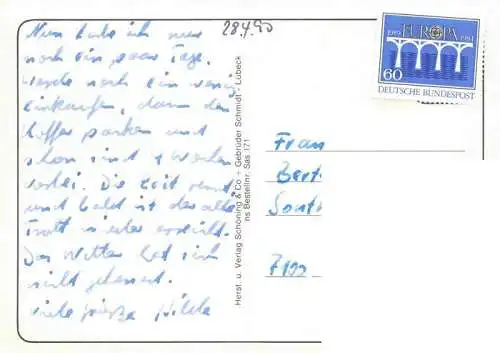 Nun habe ich nur
noch ein paar Tage.
Werde noch ein wenig
einkaufen, dann den
Koffer packen und
schon sind 4 Wochen
vorbei. Die Zeit rennt
und bald ist der alte
Trott wieder erreicht.
Das Wetter hat sich
nicht gebessert.
Viele Grüße Hilde
28.4.90
Herst. u. Verlag Schöning & Co + Gebrüder Schmidt - Lübeck
ns Bestellnr. Sas 171
1959 EUROPA 1984
60
DEUTSCHE BUNDESPOST
Frau
Bert
Sont